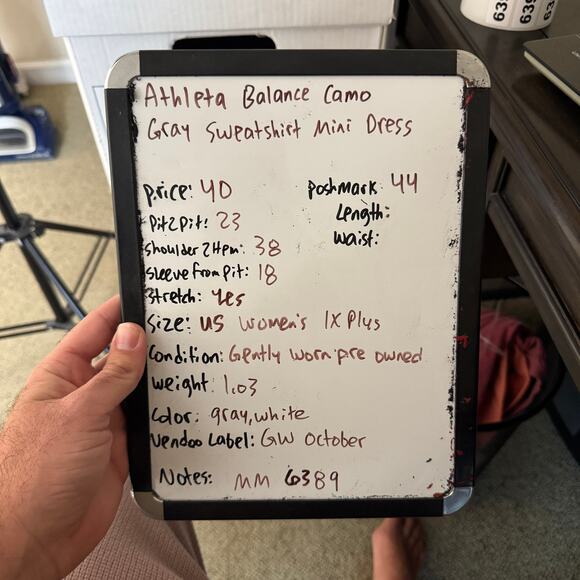 Athleta Balance Camo
Gray Sweatshirt Mini Dress
price: 40
poshmark 44
Length:
waist:
Pit2Pit: 23
shoulder 2 Hem: 38
sleeve from pit: 18
stretch: yes
Size: US Women's 1X Plus
Condition: Gently worn pre owned
weight: 1.03
Color: gray, white
Vendoo Label: GW October
Notes: MM 6389